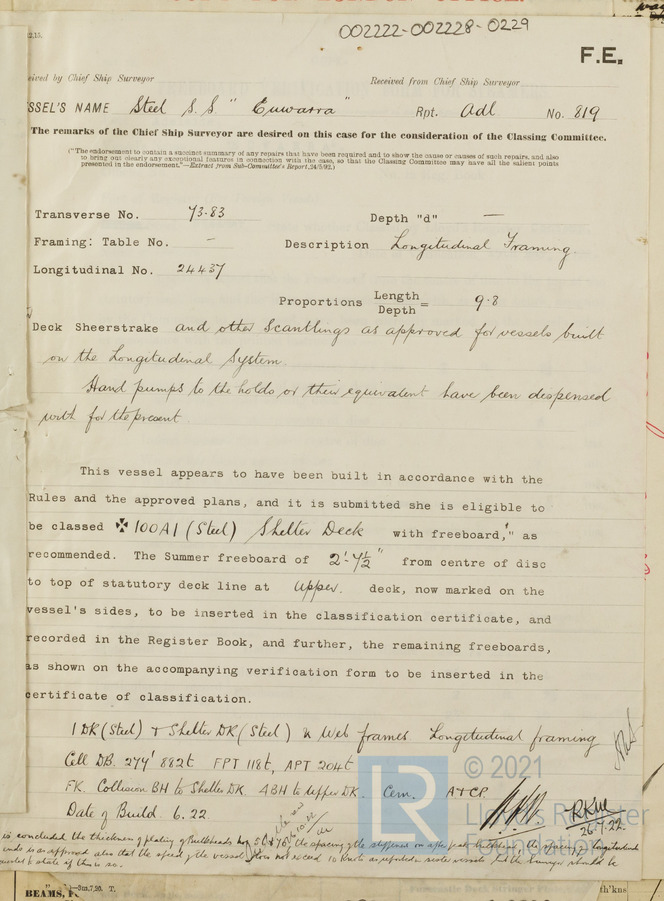 002222-002228-0229
2.15.
F.E.
eived by Chief Ship Surveyor
Received from Chief Ship Surveyor
SSEL'S NAME Steel S.S. "Euwarra" Rpt. Adl No. 819
The remarks of the Chief Ship Surveyor are desired on this case for the consideration of the Classing Committee.
("The endorsement to contain a succinct summary of any repairs that have been required and to show the cause or causes of such repairs, and also
to bring out clearly any exceptional features in connection with the case, so that the Classing Committee may have all the salient points
presented in the endorsement."—Extract from Sub-Committee's Report, 24/5/92.)
Transverse No. 73.83 Depth "d" —
Framing: Table No. - Description Longitudinal Framing.
Longitudinal No. 24437
Proportions Length/Depth = 9.8
Deck Sheerstrake and other Scantlings as approved for vessels built
on the Longitudinal System.
Hand pumps to the holds or their equivalent have been dispensed
with for the present
This vessel appears to have been built in accordance with the
Rules and the approved plans, and it is submitted she is eligible to
be classed ✠ 100A1 (Steel) Shelter Deck with freeboard," as
recommended. The Summer freeboard of 2'-7½" from centre of disc
to top of statutory deck line at Upper. deck, now marked on the
vessel's sides, to be inserted in the classification certificate, and
recorded in the Register Book, and further, the remaining freeboards,
as shown on the accompanying verification form to be inserted in the
certificate of classification.
1 DK (Steel) & Shelter DK (Steel) Web frames Longitudinal framing
Cell DB. 274' 882t FPT 118t, APT 204t
FK. Collision BH to Shelter DK 4BH to Upper DK. Cem. A&CP
Date of Build. 6.22.
26.7.22.
is concluded the thickness of plating of Bulkheads the spacing of the stiffeners on after peak bulkhead the spacing of the longitudinals
as approved also that the speed of the vessel does not exceed 10 knots as reported in sister vessels but the Surveyor should be
to state if this is so.
© 2021
LR
Lloyd's Register
Foundation
BEAMS, F
th'kns